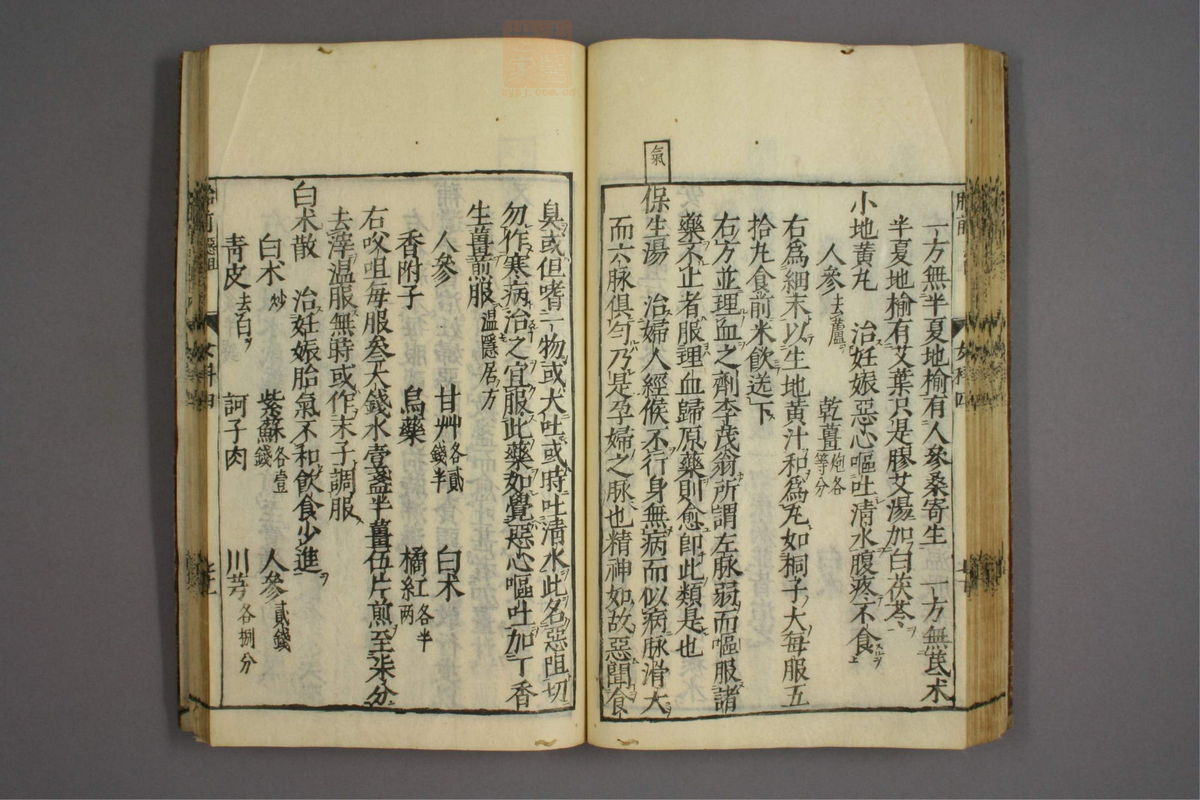 一方無半夏地榆有人參桑寄生 一方無芪术
半夏地榆有艾葉只是膠艾湯加白茯苓
小地黃丸 治妊娠惡心嘔吐清水腹疼不食
人參去蘆 乾薑炮各等分
右爲細末以生地黃汁和爲丸如桐子大每服五
拾丸食前米飲送下
右方並理血之劑李茂翁所謂左脉弱而嘔服諸
藥不止者服理血歸原藥則愈卽此類是也
氣
保生湯 治婦人經候不行身無病而似病脉滑大
而六脉俱勻乃是孕婦之脉也精神如故惡聞食
臭或但嗜一物或大吐或時吐清水此名惡阻切
勿作寒病治之宜服此藥如覺惡心嘔吐加丁香
生薑煎服溫隱居方
人參 甘艸各貳錢半 白术
香附子 烏藥 橘紅各半兩
右㕮咀每服叁大錢水壹盞半薑伍片煎至柒分
去滓温服無時或作末子調服
白术散 治妊娠胎氣不和飮食少進
白术炒 紫蘇各壹錢 人參貳錢
靑皮去白 訶子肉 川芎各捌分